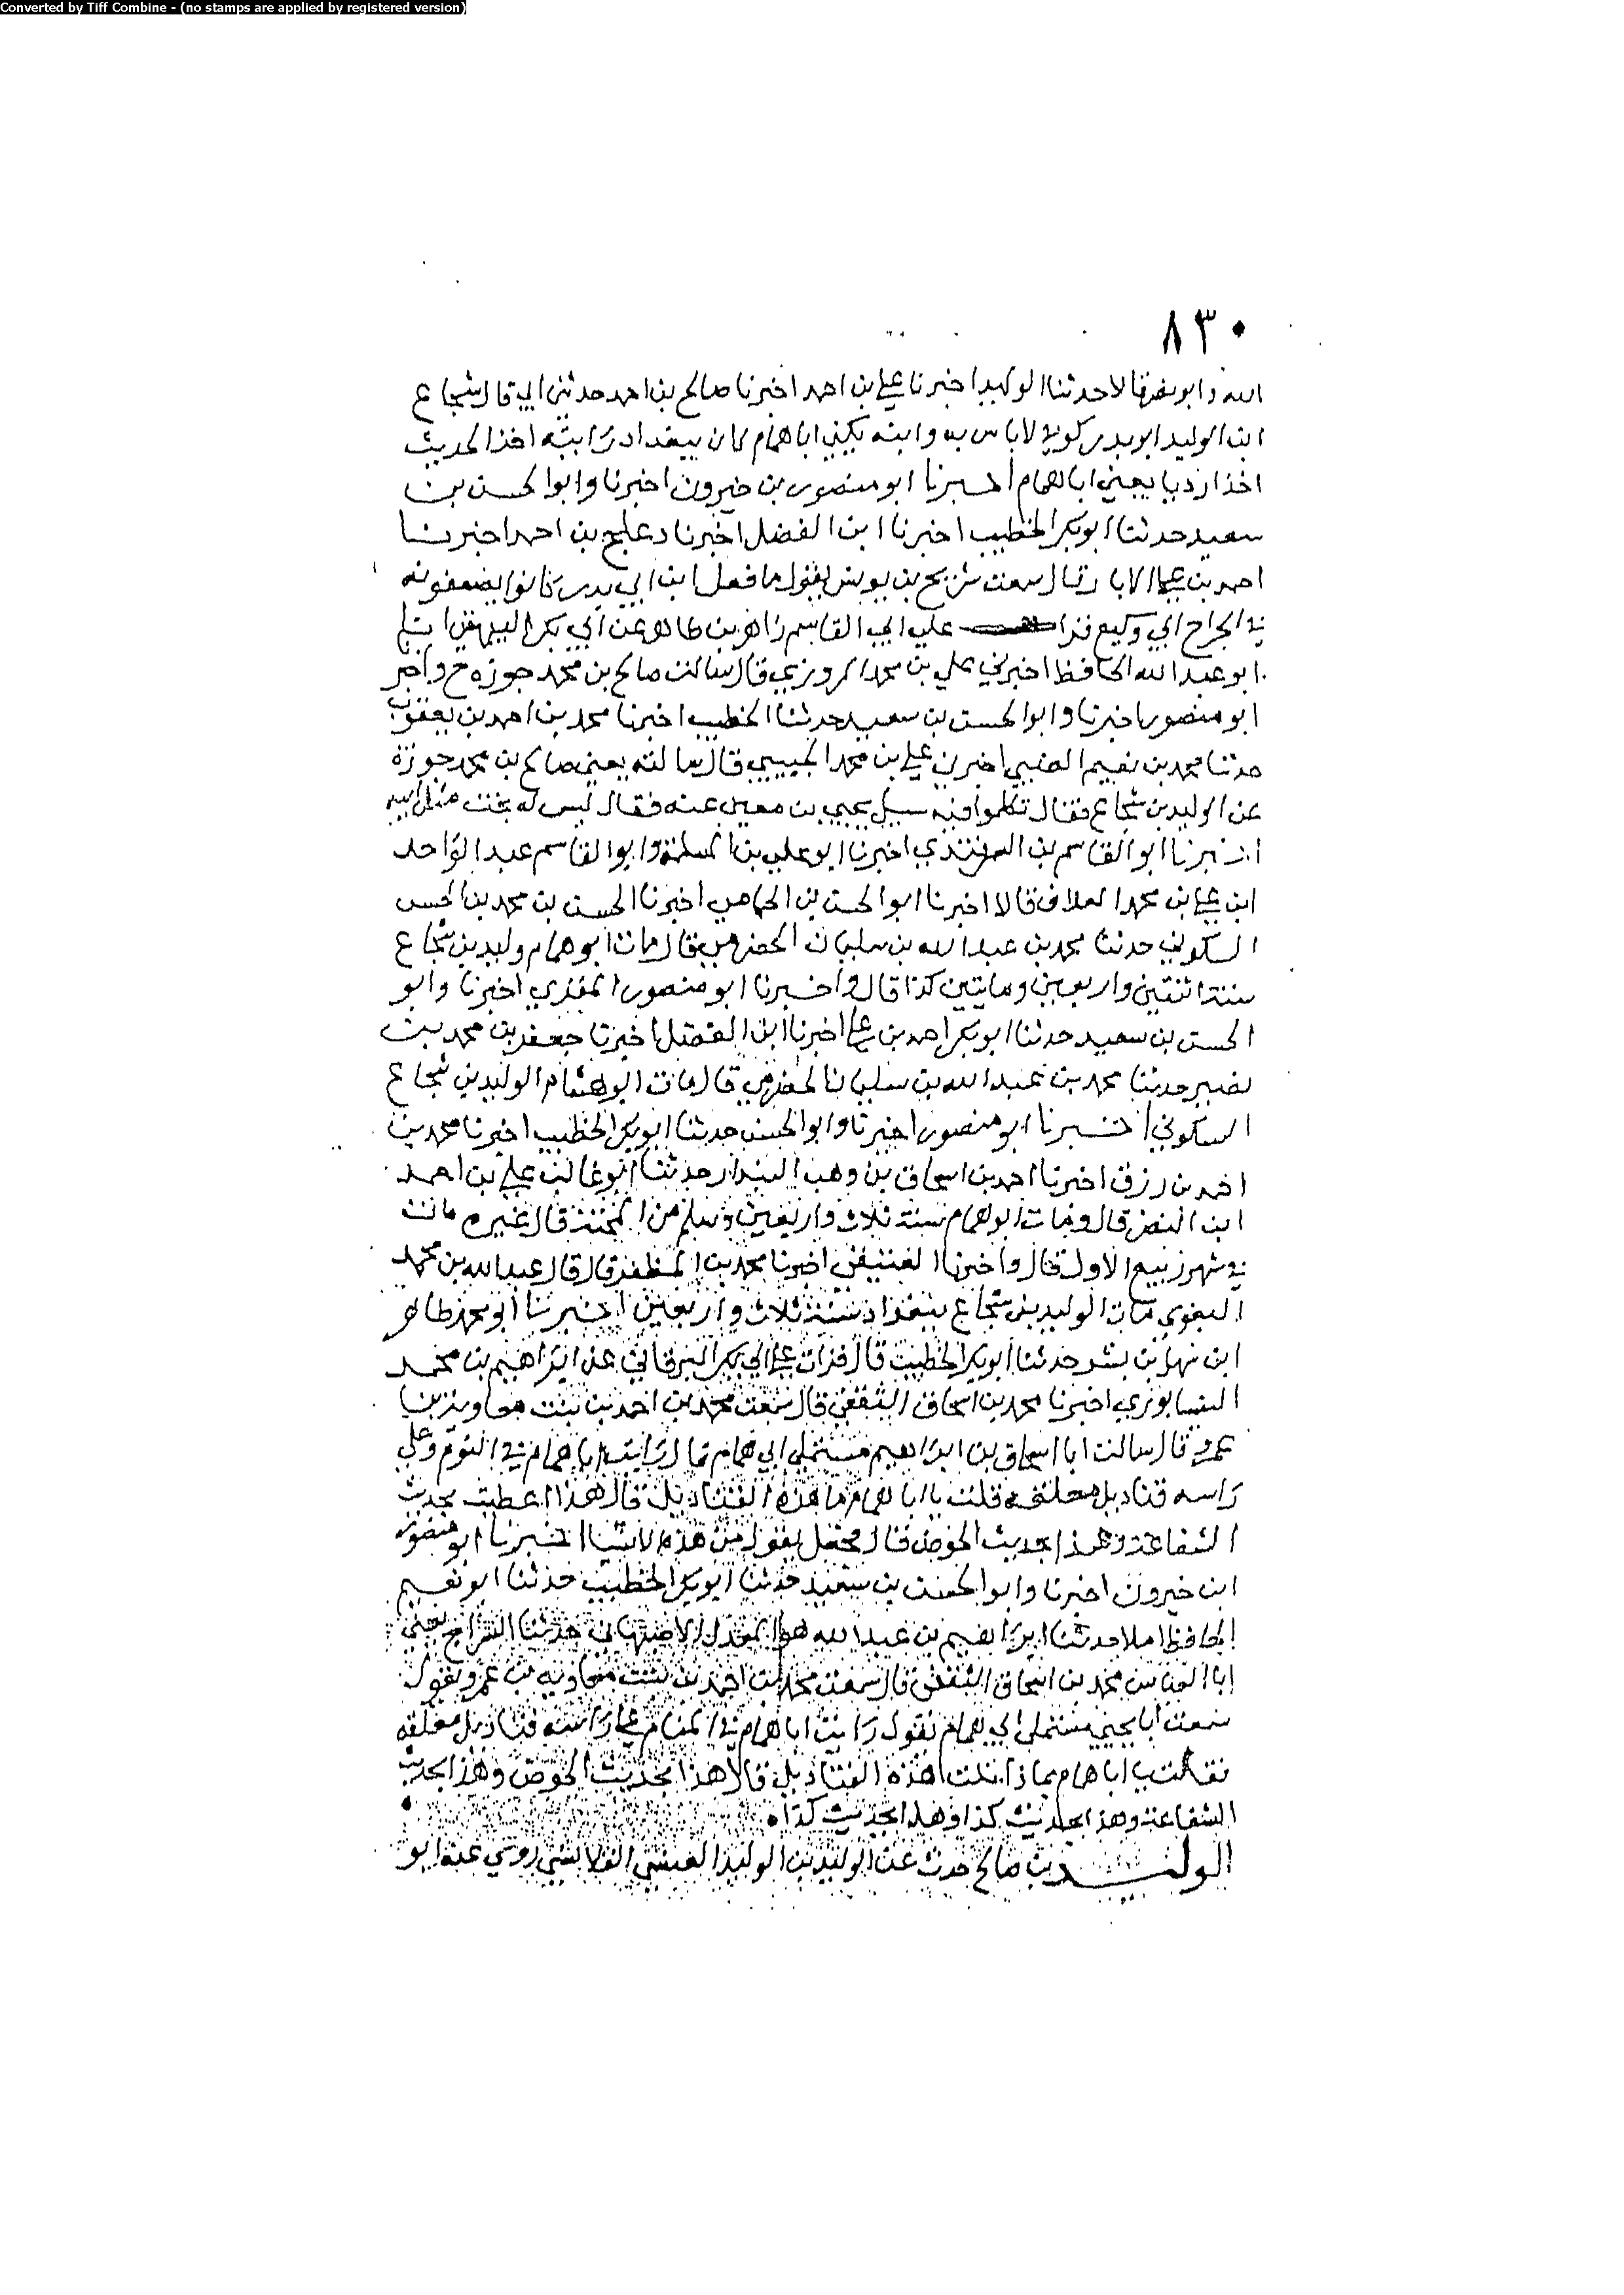 Converted by Tiff Combine - (no stamps are applied by registered version)
٨٣٠
الله وابو نصر قالا حدثنا الوليد اخبرنا علي بن احمد اخبرنا صالح بن احمد حدثني ابي قال شجاع
ابن الوليد ابو بدر كوفي لا باس به وابنه يكنى ابا همام كان ببغداد رايته اخذ الحديث
اخذا رديا يعني ابا همام اخبرنا ابو منصور بن خيرون اخبرنا وابو الحسن بن
سعيد حدثنا ابو بكر الخطيب اخبرنا ابن الفضل اخبرنا دعلج بن احمد اخبرنا
احمد بن علي الابار قال سمعت شريح بن يونس يقول ما فعل ابن ابي بدر كانوا يضعفونه
في الجراح ابي وكيع قرا علي ابي القاسم زاهر بن طاهر عن ابي بكر البيهقي
ابو عبد الله الحافظ اخبرني علي بن محمد المروزي قال سالت صالح بن محمد جوزه ح واخبر
ابو منصور اخبرنا وابو الحسن بن سعيد حدثنا الخطيب اخبرنا محمد بن احمد بن يعقوب
حدثنا محمد بن نعيم الضبي اخبرني علي بن محمد الحبيبي قال سالته يعني صالح بن محمد جوزة
عن الوليد بن شجاع فقال تكلموا فيه سيل يحيى بن معين عنه فقال ليس له بخت مثل ابيه
اخبرنا ابو القاسم بن السمرقندي اخبرنا ابو علي بن المسلمة وابو القاسم عبد الواحد
ابن علي بن محمد العلاف قالا اخبرنا ابو الحسن بن الحمامي اخبرنا الحسن بن محمد بن الحسن
السكوني حدثنا محمد بن عبد الله بن سليمان الحضرمي قال مات ابو همام وليد بن شجاع
سنة اثنتين واربعين ومايتين كذا قال واخبرنا ابو منصور المقري اخبرنا وابو
الحسن بن سعيد حدثنا ابو بكر احمد بن علي اخبرنا ابن الفضل اخبرنا جعفر بن محمد بن
نصير حدثنا محمد بن عبد الله بن سليمان الحضرمي قال مات ابو همام الوليد بن شجاع
السكوني اخبرنا ابو منصور اخبرنا وابو الحسن حدثنا ابو بكر الخطيب اخبرنا محمد بن
احمد بن رزق اخبرنا احمد بن اسحاق بن وهب البندار حدثنا ابو غالب علي بن احمد
ابن النضر قال ومات ابو همام سنة ثلاث واربعين وسلم من المحنة قال غيره مات
في شهر ربيع الاول قال واخبرنا العتيقي اخبرنا محمد بن المظفر قال قال عبد الله بن محمد
البغوي مات الوليد بن شجاع ببغداد سنة ثلاث واربعين اخبرنا ابو محمد طاهر
ابن سهل بن بشر حدثنا ابو بكر الخطيب قال قرات علي ابي بكر البرقاني عن ابراهيم بن محمد
النيسابوري اخبرنا محمد بن اسحاق الثقفي قال سمعت محمد بن احمد بن بنت معاوية بن
عمرو قال سالت ابا اسحاق بن ابراهيم مستملي ابي همام قال رايت ابا همام في النوم وعلى
راسه قناديل معلقة قلت يا ابا همام ما هذه القناديل قال هذا اعطيت بحديث
الشفاعة وهذا بحديث الحوض قال فجعل يقول من هذه الاشيا اخبرنا ابو منصور
ابن خيرون اخبرنا وابو الحسن بن سعيد حدثنا ابو بكر الخطيب حدثنا ابو نعيم
الحافظ املا حدثنا ابراهيم بن عبد الله هو المعدل الاصبهاني حدثنا السراج يعني
ابا العباس محمد بن اسحاق الثقفي قال سمعت محمد بن احمد بن بنت معاوية بن عمرو يقول
سمعت ابا يحيى مستملي ابي همام يقول رايت ابا همام في المنام على راسه قناديل معلقه
فقلت يا ابا همام بماذا نلت هذه القناديل قال هذا بحديث الحوض وهذا بحديث
الشفاعة وهذا بحديث كذا وهذا بحديث كذا ه
الوليد بن صالح حدث عن الوليد بن الوليد العنسي القلانسي روى عنه ابو